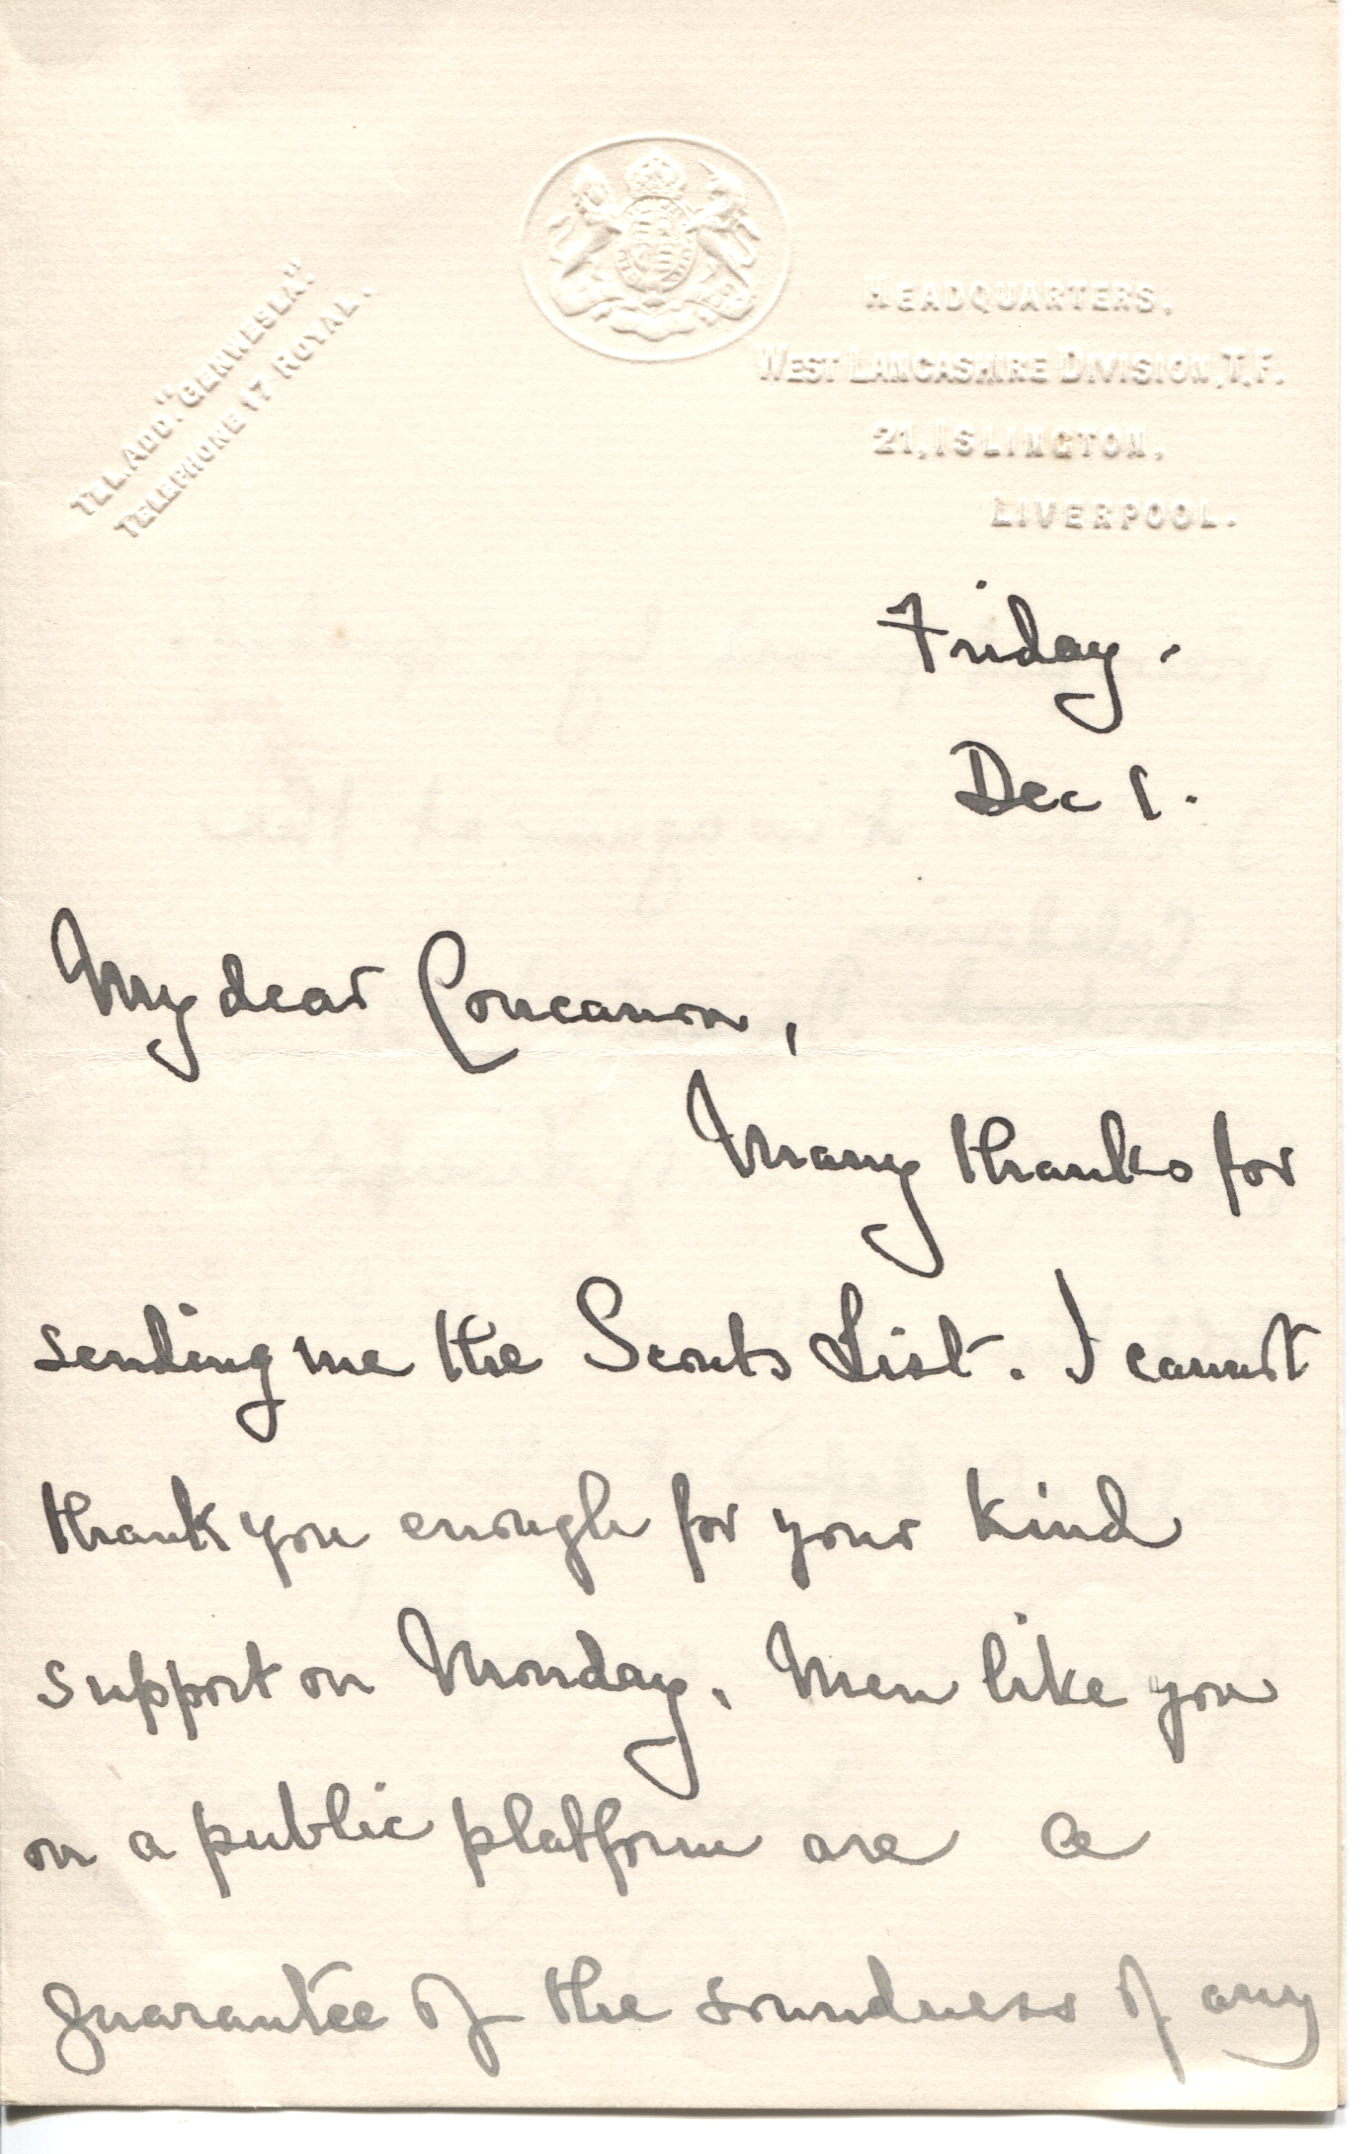 TEL. ADD. "GENWESLA".
TELEPHONE 17 ROYAL.
HEADQUARTERS.
WEST LANCASHIRE DIVISION, T.F.
21, ISLINGTON,
LIVERPOOL.
Friday.
Dec 1.
My dear Concannon,
Many thanks for
sending me the Scouts List. I cannot
thank you enough for your kind
support on Monday. Men like you
on a public platform are a
guarantee of the soundness of any